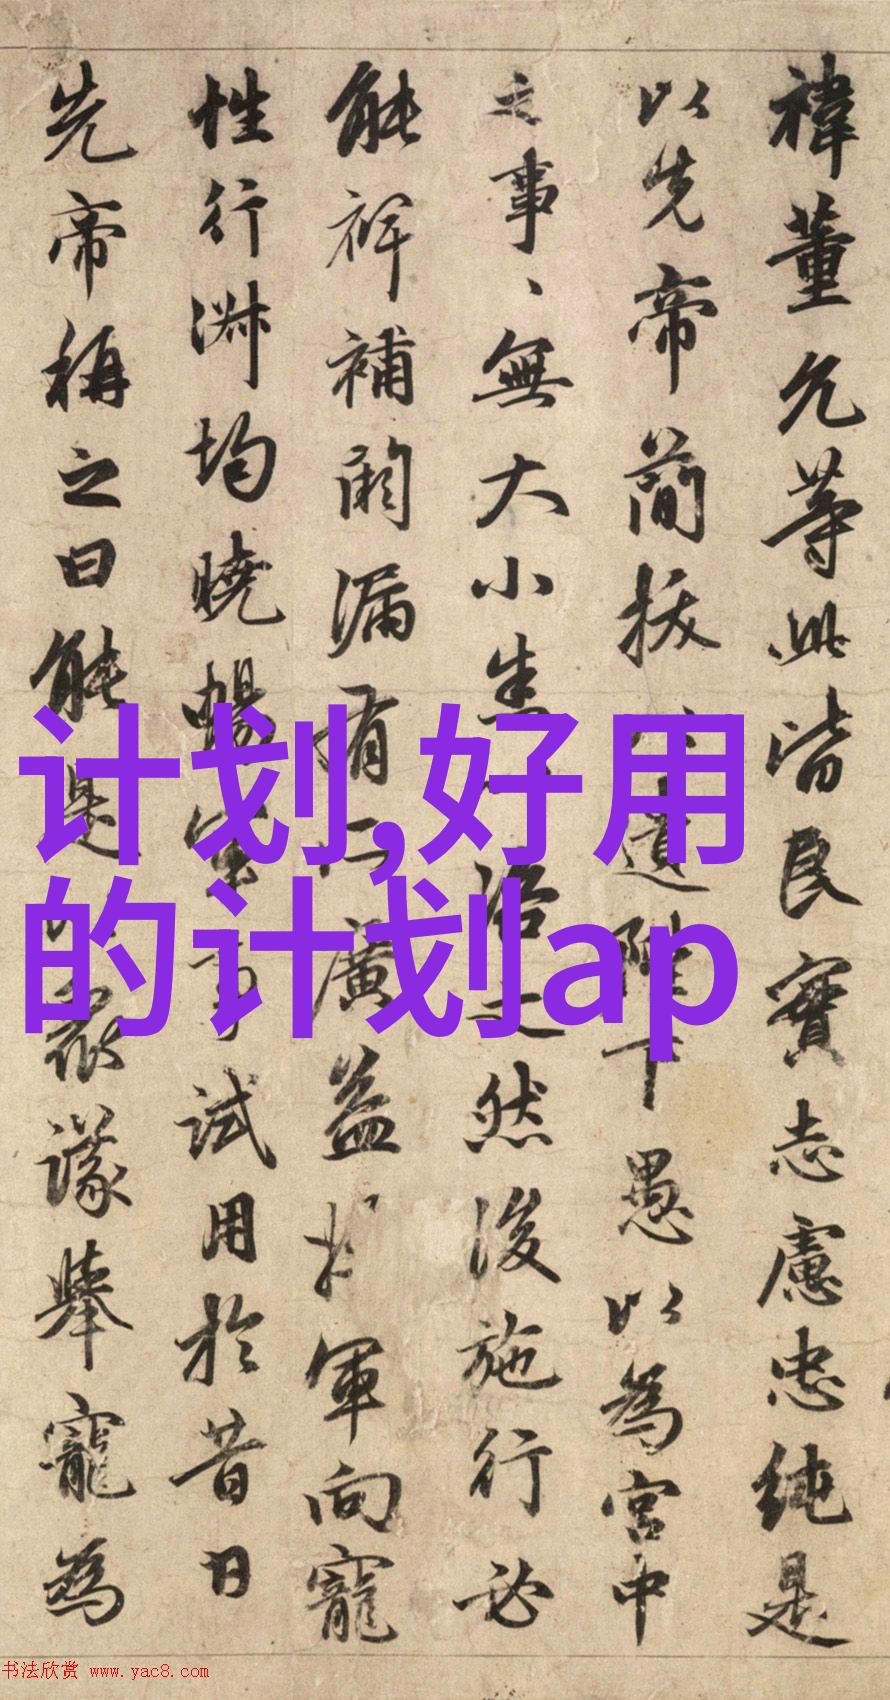 禕董允等此皆良實志慮忠純是
以先帝簡拔遺陛下愚以為宮中
之事、無大小咨之然後施行必
能裨補闕漏有廣益軍向寵
性行淑均曉暢軍事試用於昔日
先帝稱之曰能是眾議舉寵為
计划,好用
的计划ap
书法欣赏 www.yac8.com